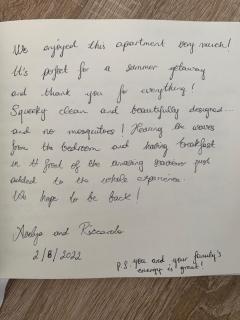 We enjoyed this apartment very much!
It's perfect for a summer getaway
and thank you for everything!
Squeeky clean and beautifully designed...
and no mosquitoes! Hearing the waves
from the bedroom and having breakfast
in front of the amazing just
added to the whole experience.
We hope to be back!
and Riccardo
2/8/2022
P.S you and your family's
energy is great!